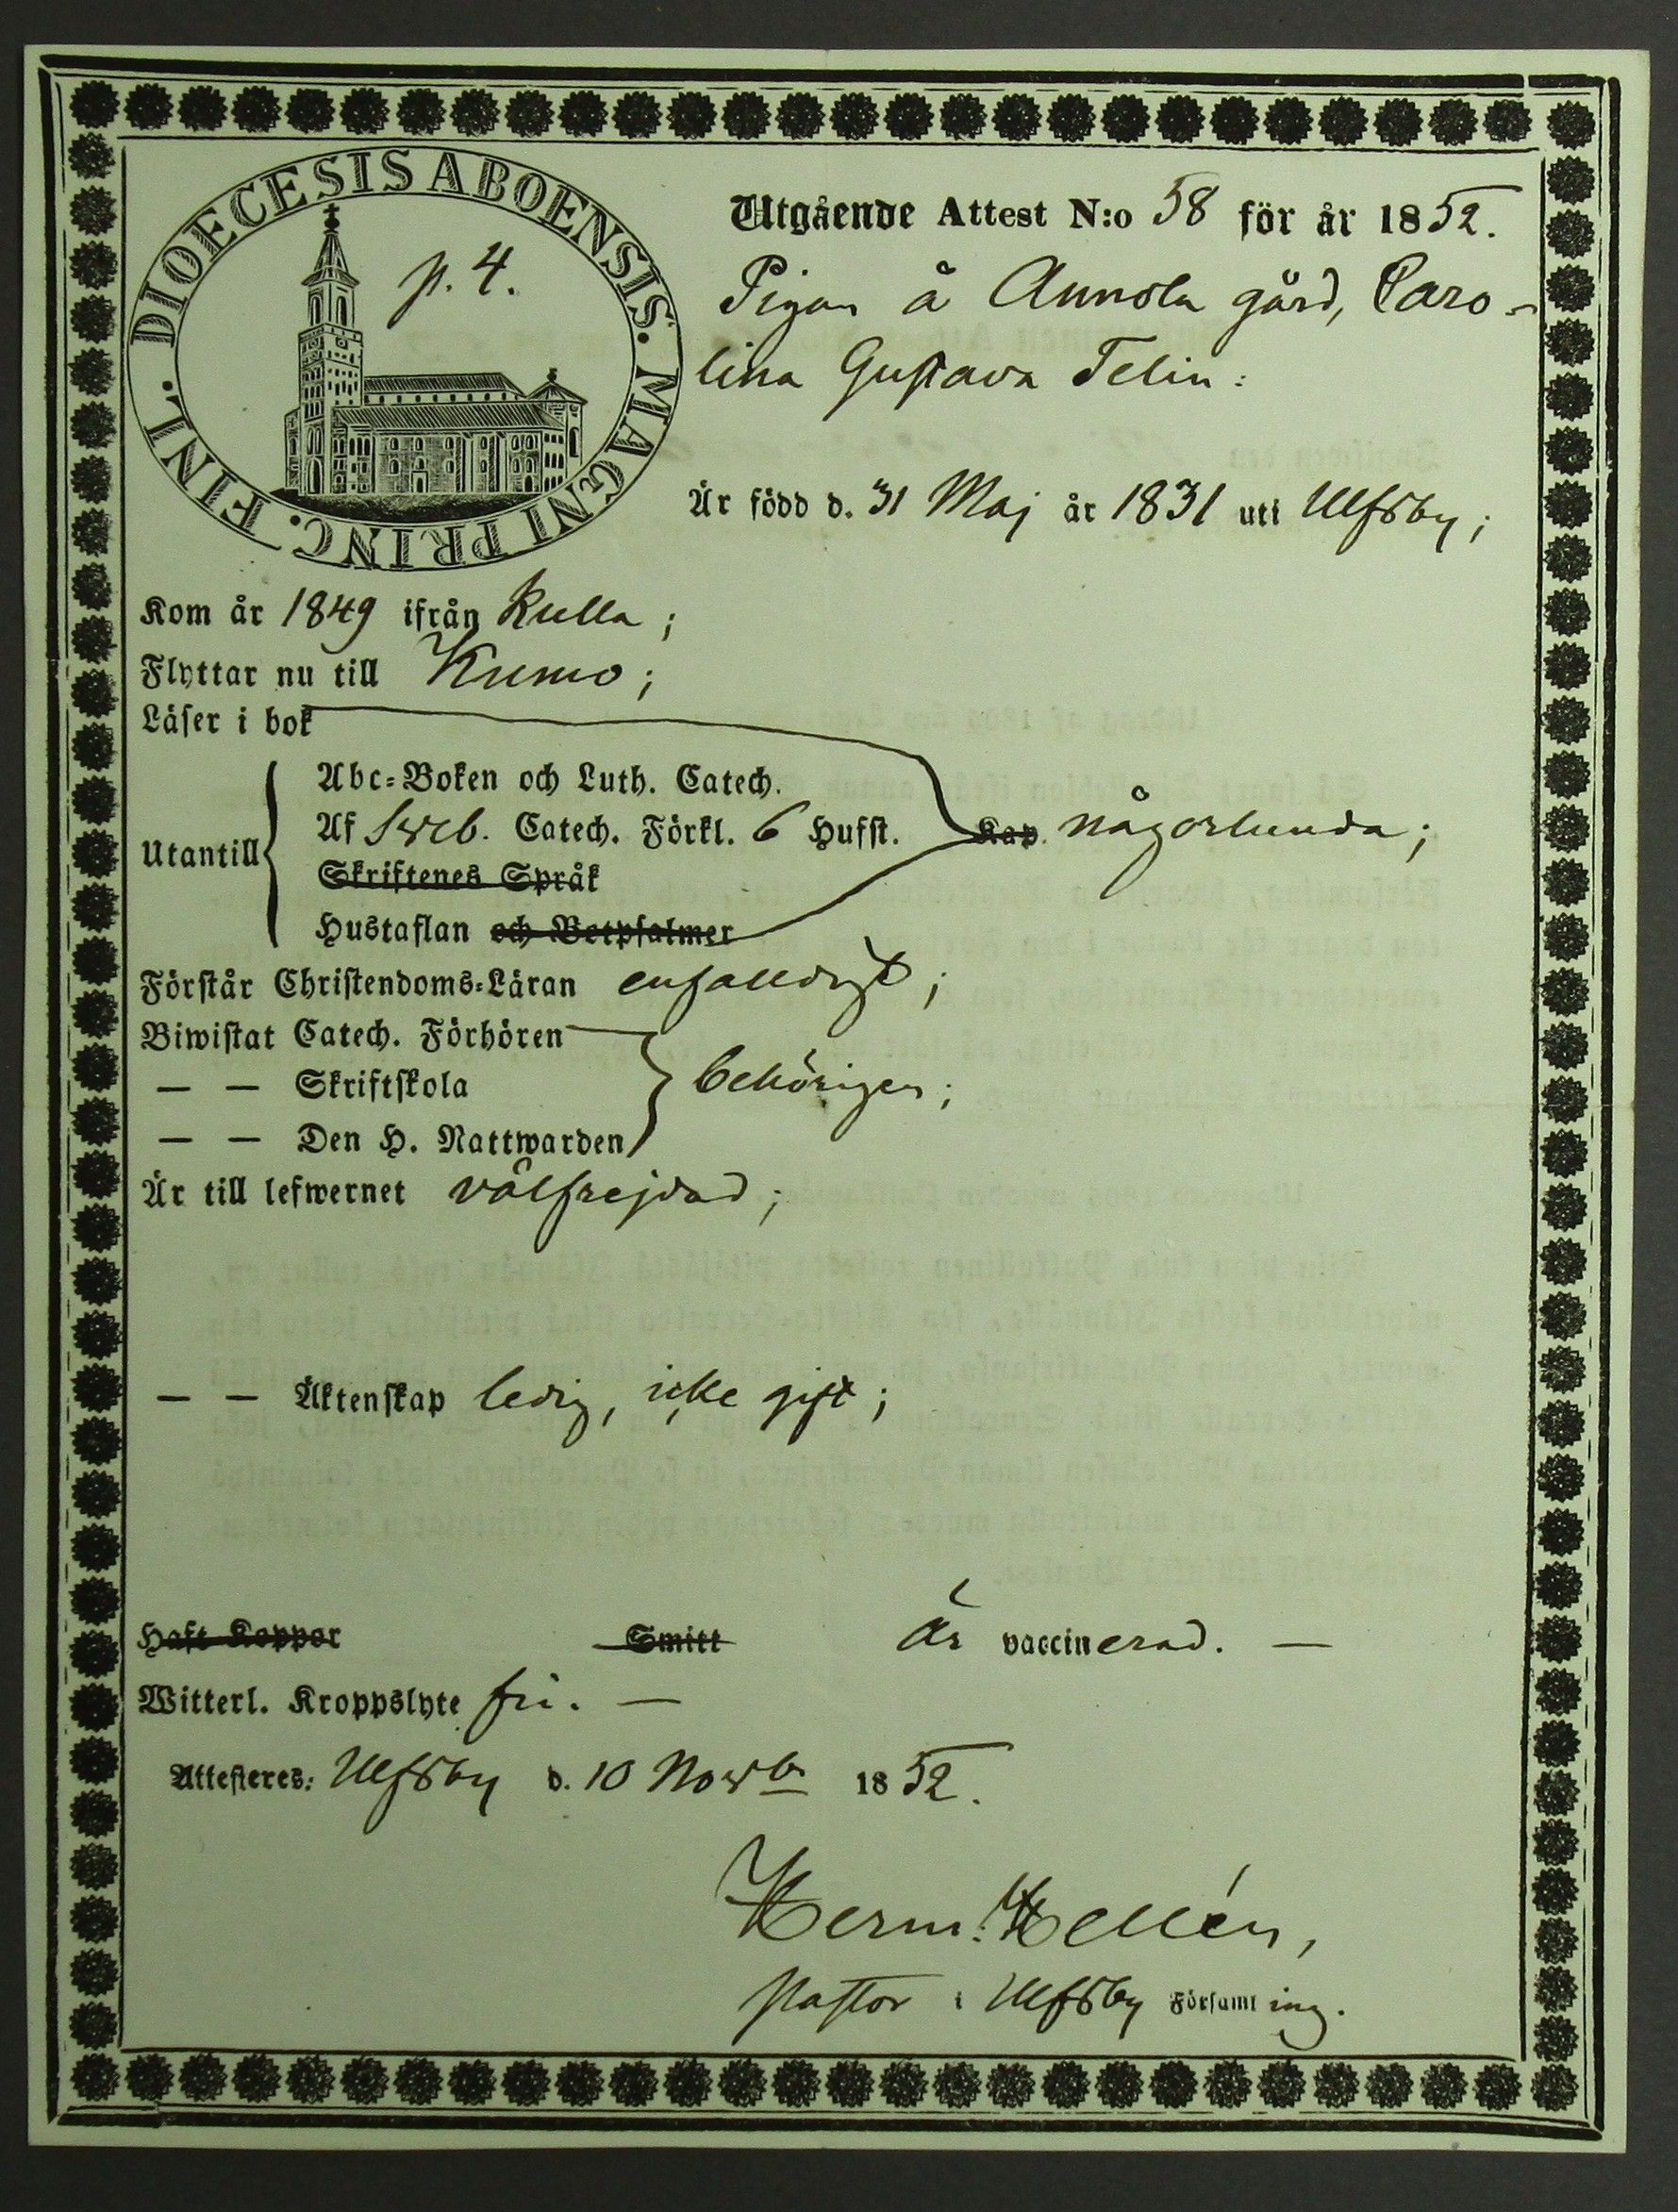 DIOECESIS ABOENSIS. MAGNI PRINC. FINL.
p. 4.
Utgående Attest N:o 58 för år 1852.
Pigan å Annola gård, Caro-
lina Gustava Telin:
Är född d. 31 Maj år 1831 uti Ulfsby;
Kom år 1849 ifrån Kulla;
Flyttar nu till Kumo;
Läser i bok
Utantill
Abc-Boken och Luth. Catech.
Af Sveb. Catech. Förkl. 6 Hufst. Kap. någorlunda;
Skriftenes Språk
Hustaflan och Botpsalmer
Förstår Christendoms-Läran enfalldigt;
Biwistat Catech. Förhören
— — Skriftskola behörigen;
— — Den H. Nattwarden
Är till lefwernet välfrejdad;
— — Äktenskap ledig, icke gift;
Haft Koppor Smitt Är vaccinerad. —
Witterl. Kroppslyte fri. —
Attesteres: Ulfsby d. 10 Novbr 1852.
Herm: Hellén,
Pastor i Ulfsby Församling.